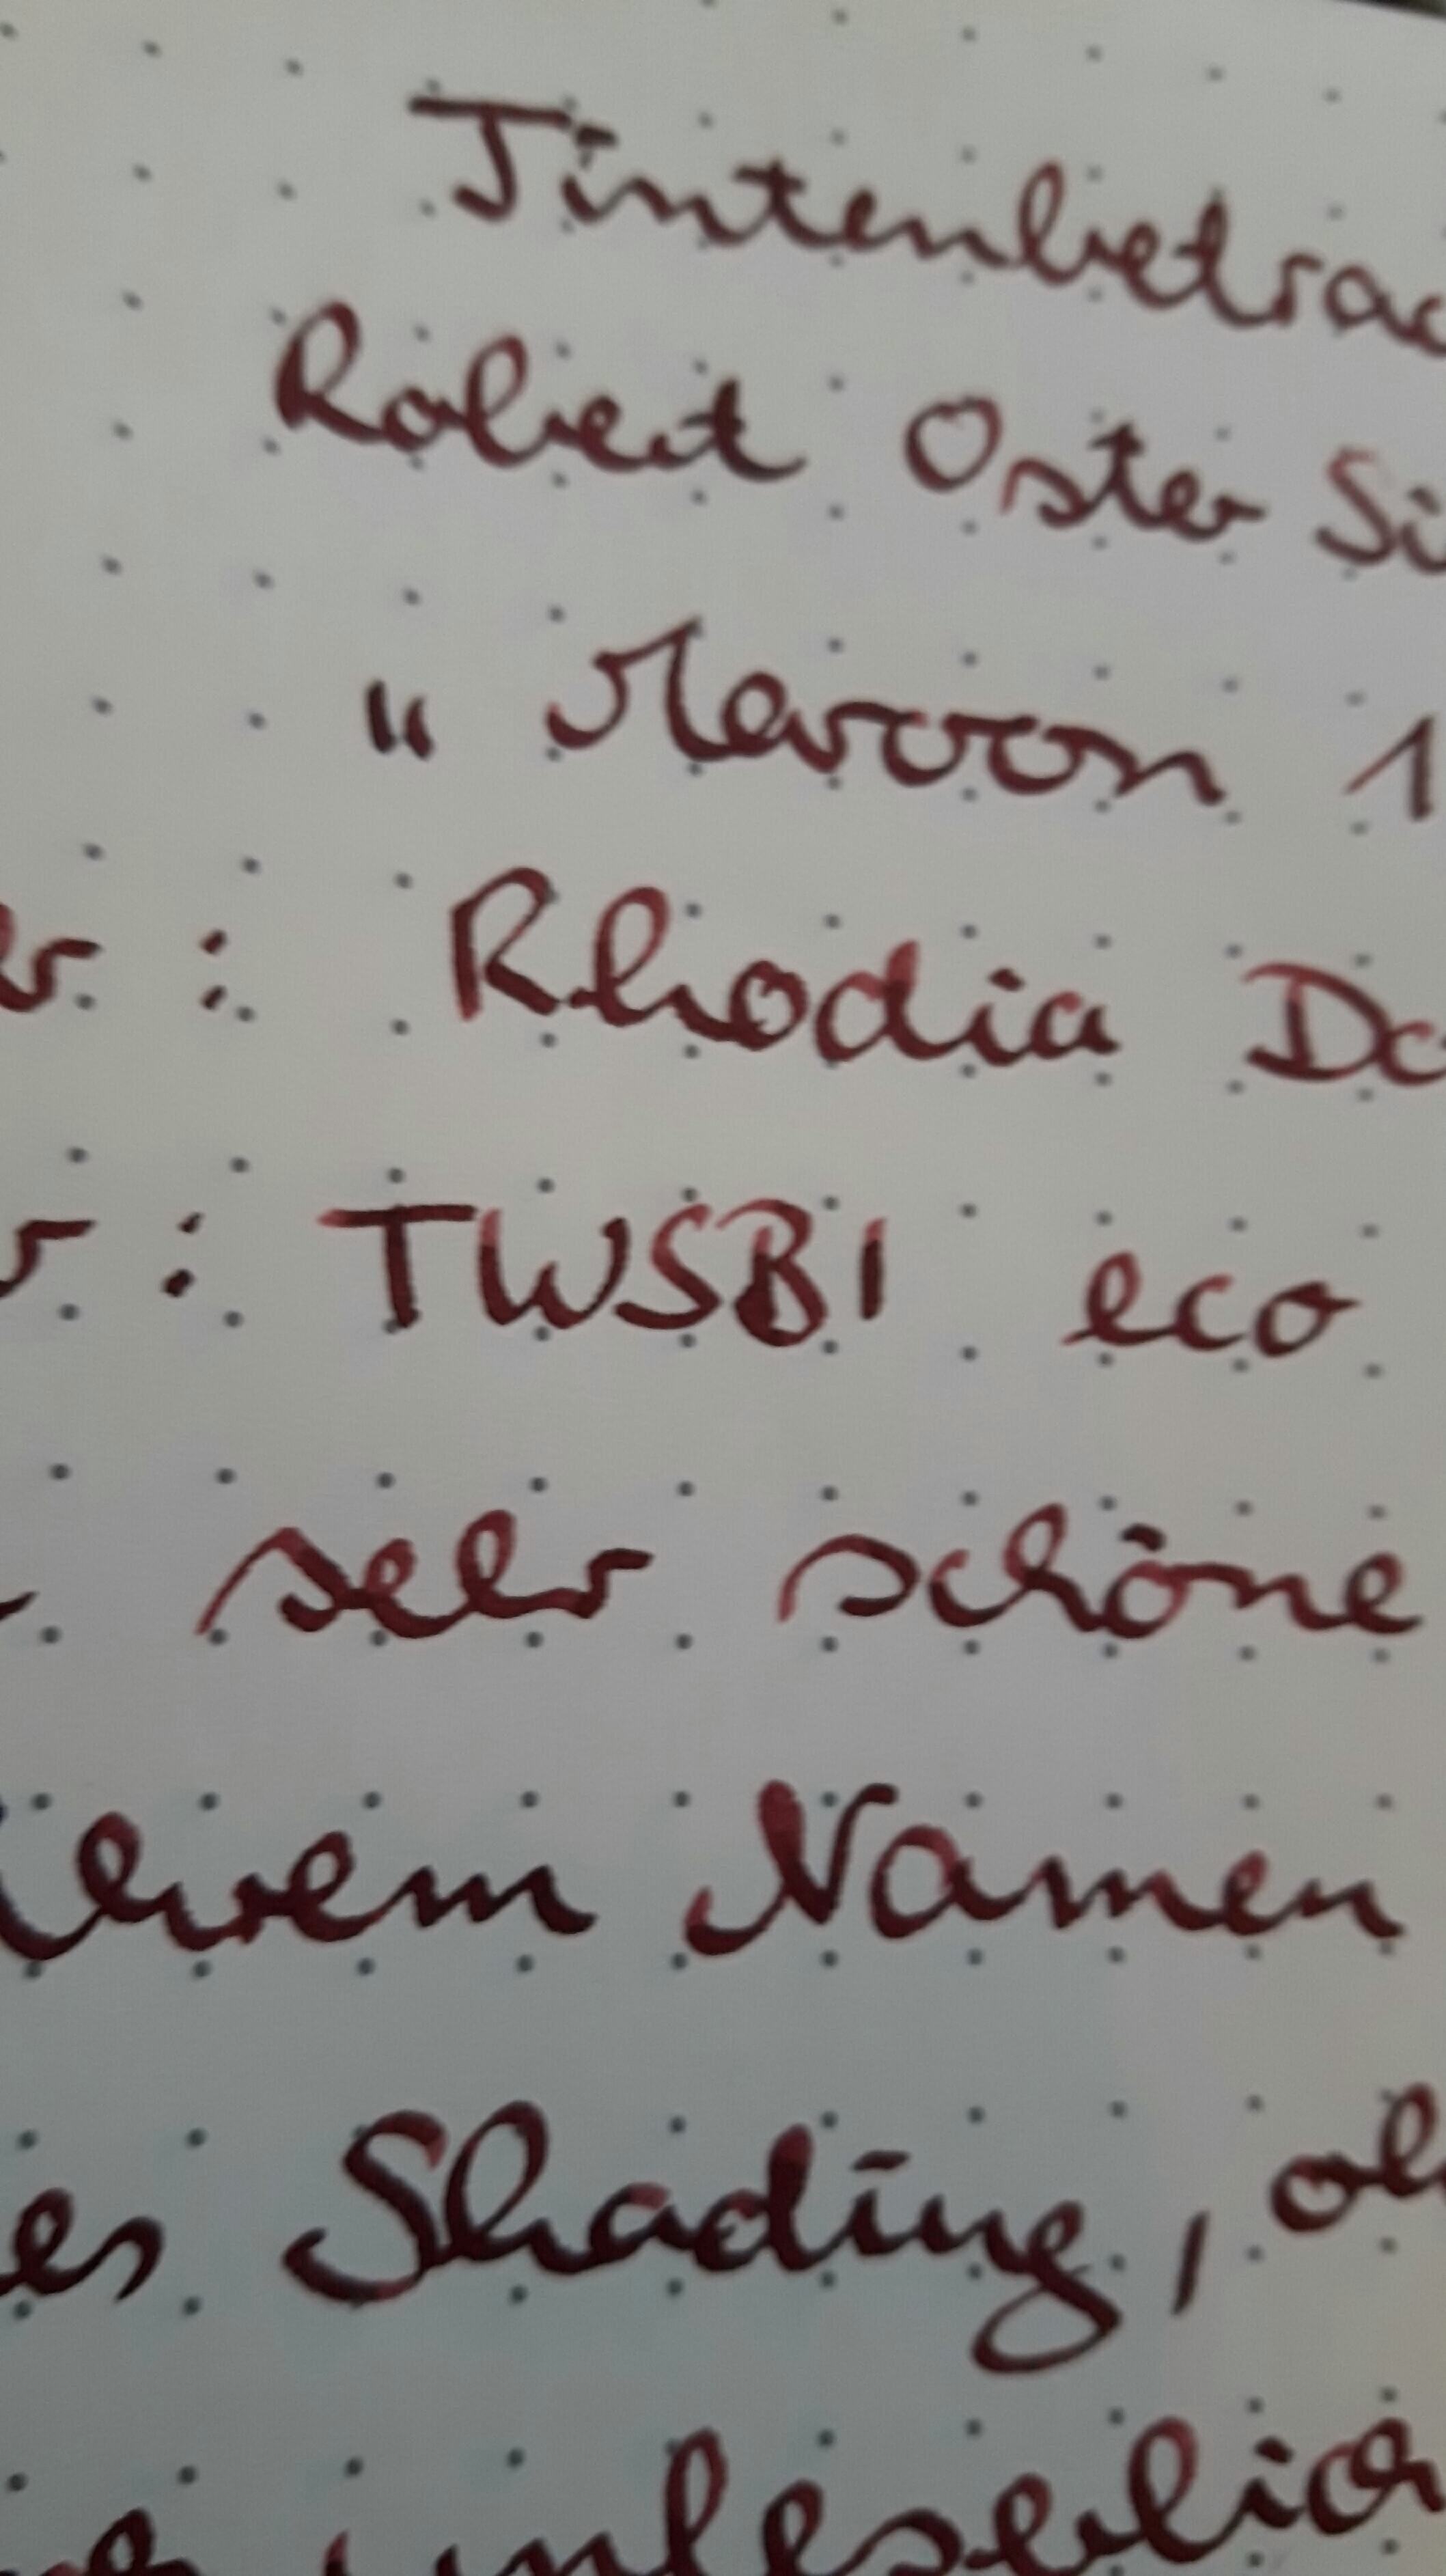 Tintenbetrac
Robert Oster Si
" Maroon 1
er : Rhodia Do
r : TWSBI eco
sehr schöne
Namen
es Shading, oh
unleserlich